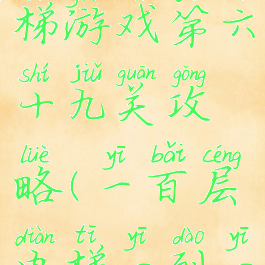 梯游戏第六
shí jiǔ guān gōng
十九关攻
lüè yī bǎi céng
略(一百层
diàn tī yī dào yī
电梯一到一